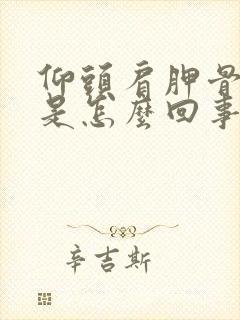 仰頭肩胛骨
是怎麼回事
辛吉斯